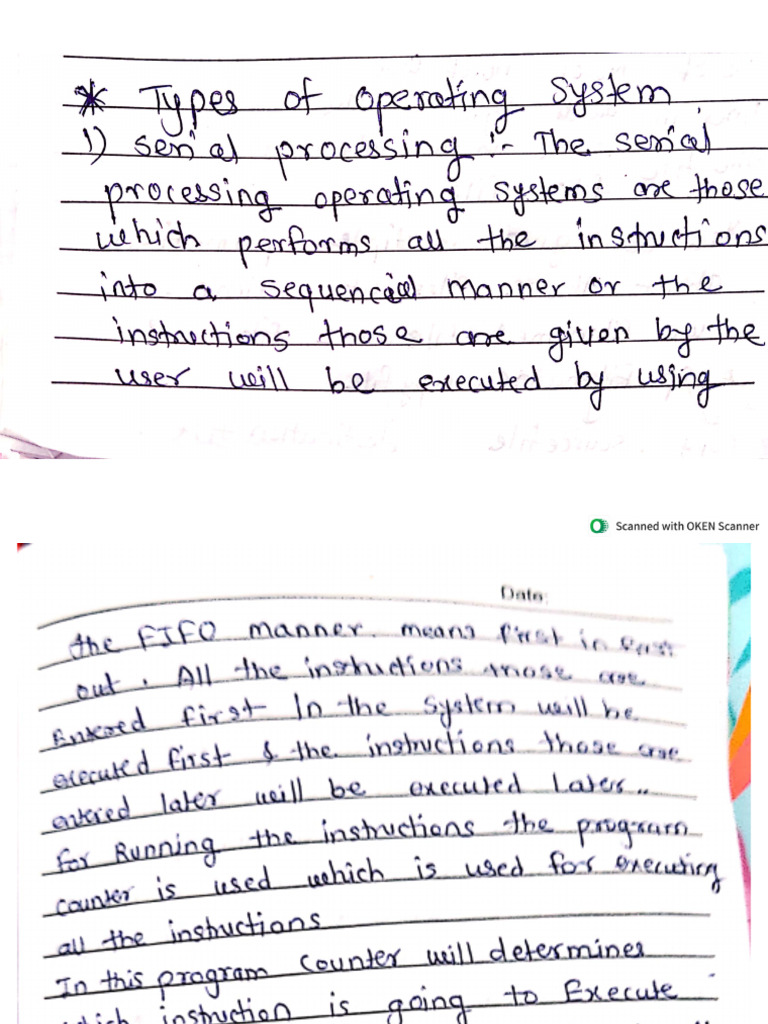 * Types of operating System
1) serial processing :- The serial
processing operating systems are those
which performs all the instructions
into a sequencial manner or the
instructions those are given by the
user will be executed by using
Scanned with OKEN Scanner
Date:
the FIFO manner. means first in
out. All the instructions those are
Entered first In the System will be
executed first & the instructions those are
entered later will be executed Later..
for Running the instructions the program
counter is used which is used for executing
all the instructions
In this program Counter will determines
which instruction is going to Execute